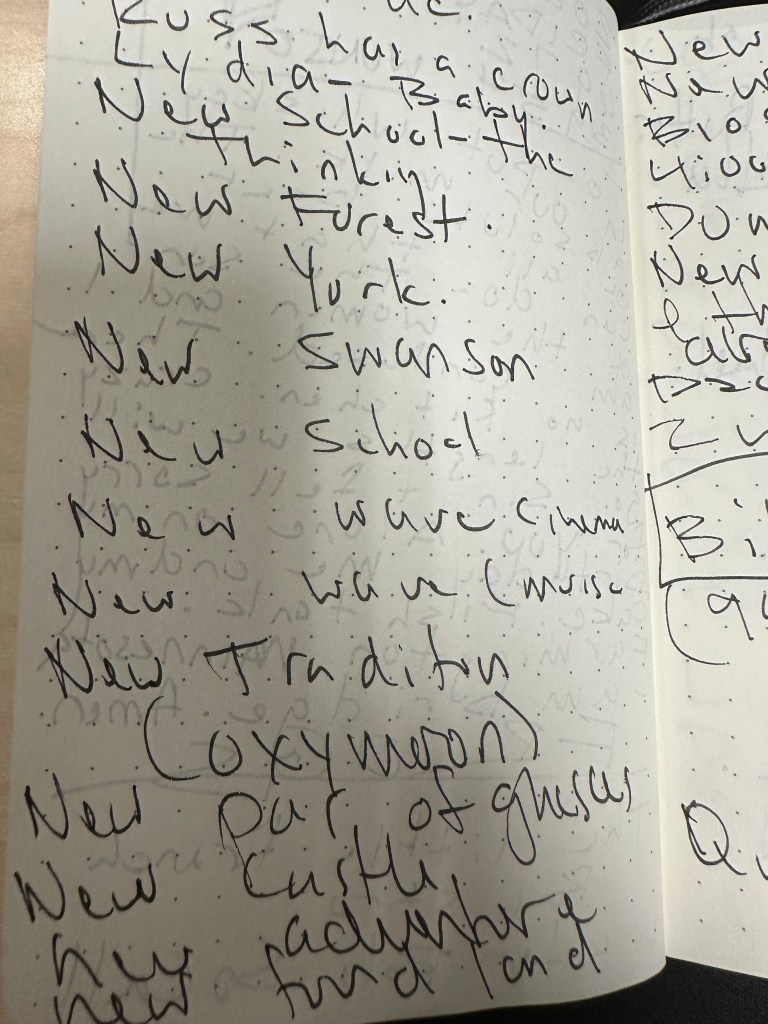 Russ has a croun
Lydia - Baby.
New School - the
thinking
New Forest.
New York.
New Swanson
New School
New wave cinema
New wave (music
New Traditon
(oxymoron)
New pair of glasses
New Castle,
new adventure
new found land
New
New
Bio
New
Bi
Q